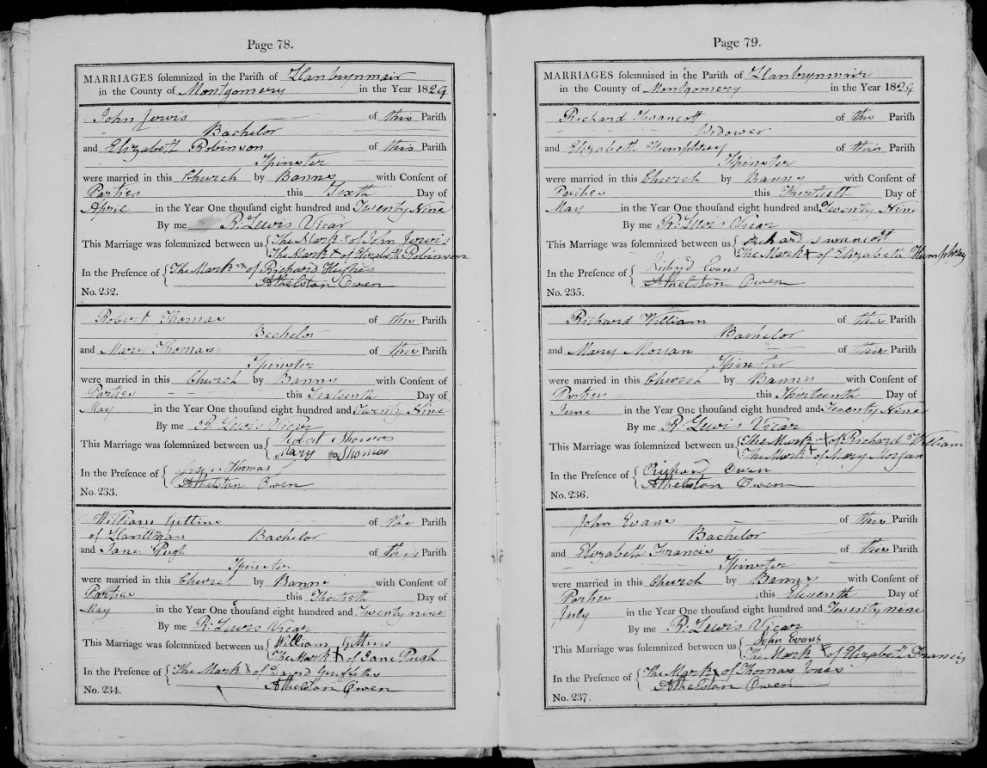 Page 78.
MARRIAGES solemnized in the Parish of Llanbrynmair
in the County of Montgomery in the Year 1829
John Jervis of this Parish
Bachelor
and Elizabeth Robinson of this Parish
Spinster
were married in this Church by Banns with Consent of
Parties this Sixth Day of
April in the Year One thousand eight hundred and Twenty Nine
By me R. Lewis Vicar
This Marriage was solemnized between us { The Mark x of John Jervis
The Mark x of Elizabeth Robinson
In the Presence of { The Mark x of Richard Hughes
Athelstan Owen
No. 232.
Robert Thomas of this Parish
Bachelor
and Mary Thomas of this Parish
Spinster
were married in this Church by Banns with Consent of
Parties this Sixteenth Day of
May in the Year One thousand eight hundred and Twenty Nine
By me R. Lewis Vicar
This Marriage was solemnized between us { Robert Thomas
Mary Thomas
In the Presence of { Thomas
Athelstan Owen
No. 233.
William Gittins of the Parish
of Bachelor
and Jane Pugh of this Parish
Spinster
were married in this Church by Banns with Consent of
Parties this Day of
May in the Year One thousand eight hundred and Twenty nine
By me R. Lewis Vicar
This Marriage was solemnized between us { William Gittins
The Mark x of Jane Pugh
In the Presence of { The Mark x of David Griffiths
Athelstan Owen
No. 234.
Page 79.
MARRIAGES solemnized in the Parish of Llanbrynmair
in the County of Montgomery in the Year 1829
Richard Swancott of this Parish
Widower
and Elizabeth Humphrey of this Parish
Spinster
were married in this Church by Banns with Consent of
Parties this Thirtieth Day of
May in the Year One thousand eight hundred and Twenty Nine
By me R. Lewis Vicar
This Marriage was solemnized between us { Richard Swancott
The Mark x of Elizabeth Humphrey
In the Presence of { Richard Evans
Athelstan Owen
No. 235.
Richard William of this Parish
Bachelor
and Mary Morgan of this Parish
Spinster
were married in this Church by Banns with Consent of
Parties this Thirteenth Day of
June in the Year One thousand eight hundred and Twenty Nine
By me R. Lewis Vicar
This Marriage was solemnized between us { The Mark x of Richard William
The Mark x of Mary Morgan
In the Presence of { Richard Owen
Athelstan Owen
No. 236.
John Evans of this Parish
Bachelor
and Elizabeth Francis of this Parish
Spinster
were married in this Church by Banns with Consent of
Parties this Eleventh Day of
July in the Year One thousand eight hundred and Twenty nine
By me R. Lewis Vicar
This Marriage was solemnized between us { John Evans
The Mark x of Elizabeth Francis
In the Presence of { The Mark x of Thomas
Athelstan Owen
No. 237.